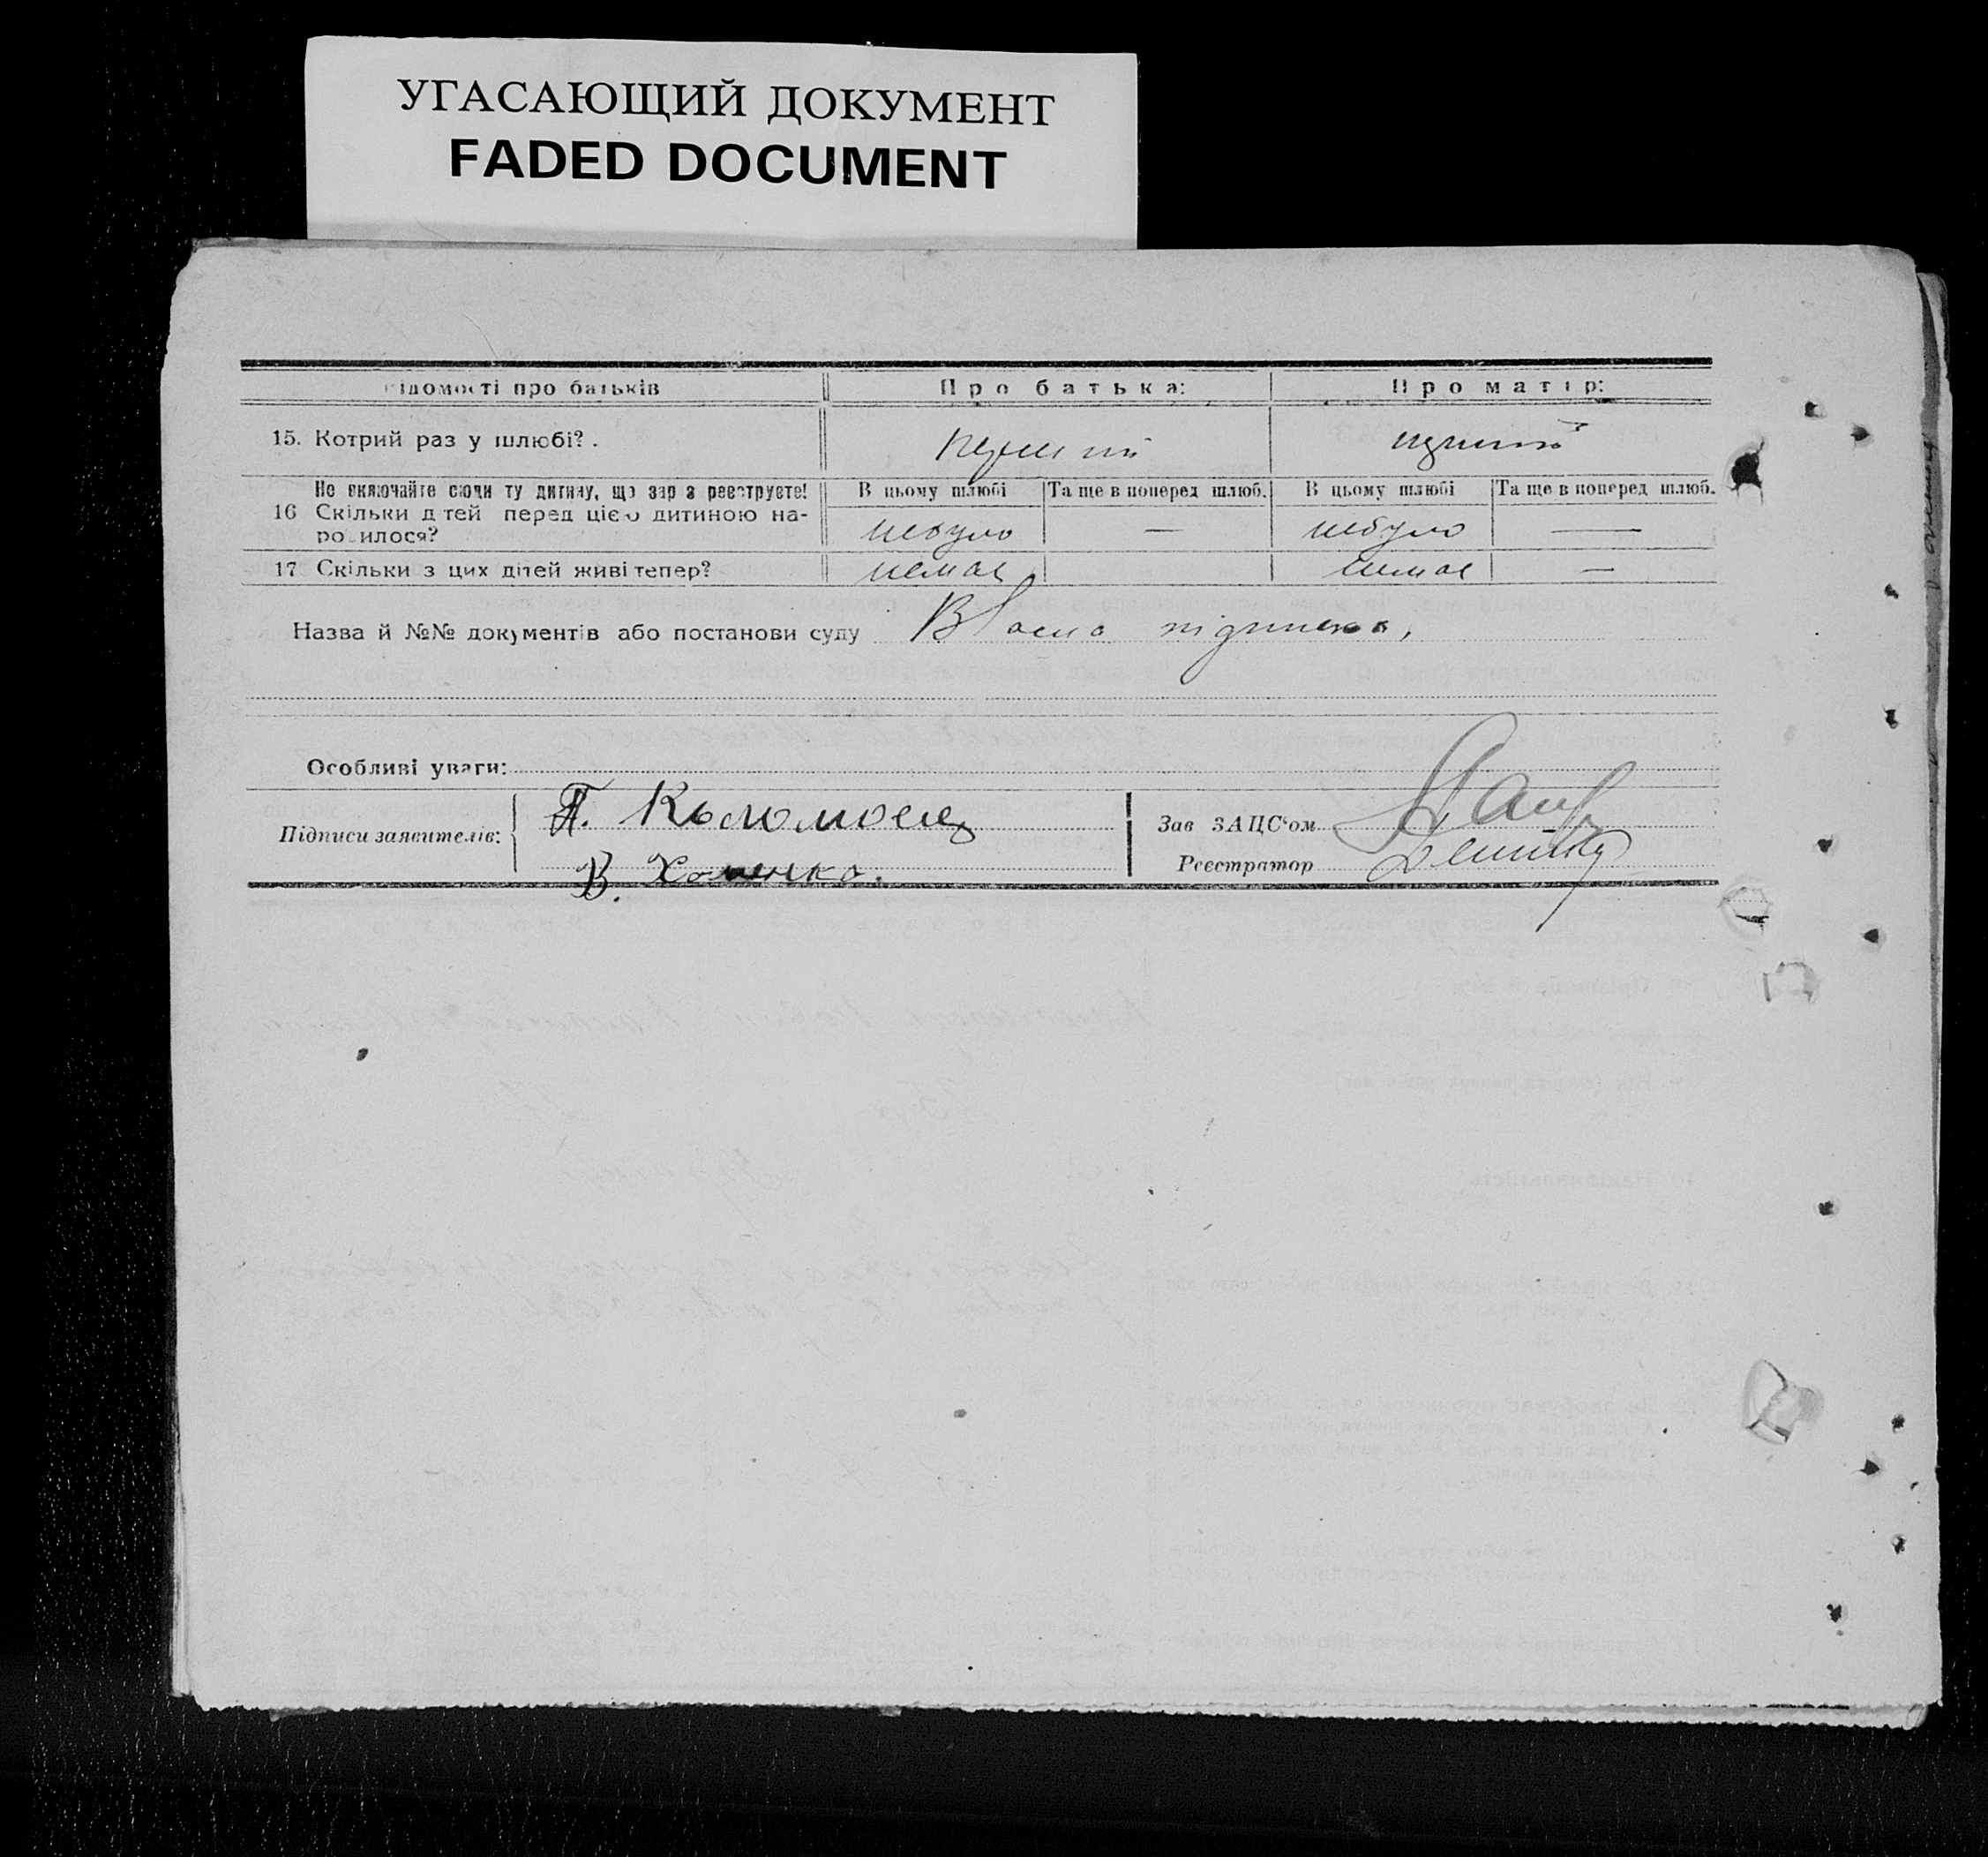 УГАСАЮЩИЙ ДОКУМЕНТ
FADED DOCUMENT
ідомості про батьків Про батька: Про матір:
15. Котрий раз у шлюбі? . перший перший
Не включайте сюди ту дитину, що зараз реєструєте! В цьому шлюбі Та ще в поперед шлюб. В цьому шлюбі Та ще в поперед шлюб.
16 Скільки дітей перед цією дитиною на- небуло — небуло —
родилося?
17 Скільки з цих дітей живі тепер? немає немає —
Назва й №№ документів або постанови суду Власна підписка,
Особливі уваги:
Підписи заявителів: П. Коломоец Зав ЗАЦС'ом
В. Хоменко. Реєстратор